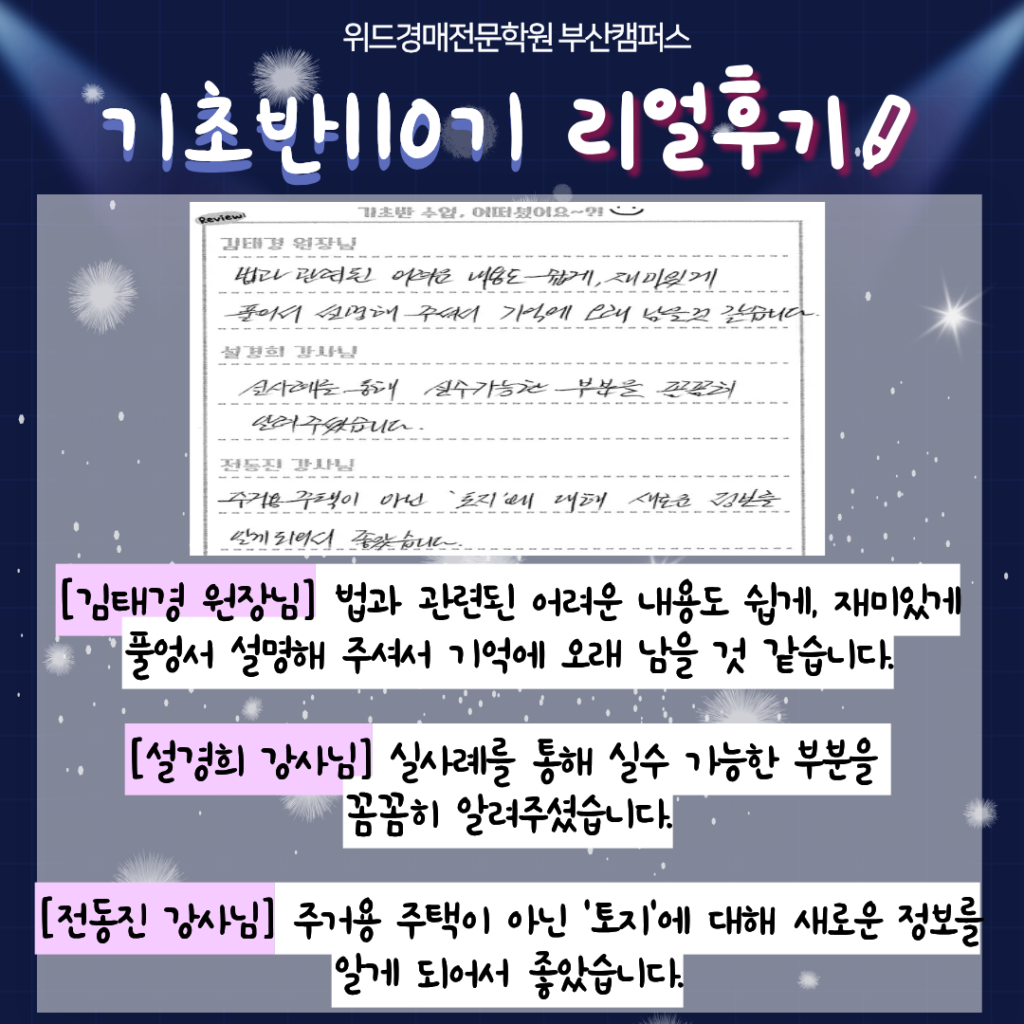 위드경매전문학원 부산캠퍼스
기초반110기 리얼후기
Review!
기초반 수업, 어떠셨어요~?!
김태경 원장님
법과 관련된 어려운 내용도 쉽게, 재미있게
풀어서 설명해 주셔서 기억에 오래 남을 것 같습니다.
설경희 강사님
실사례를 통해 실수가능한 부분을 꼼꼼히
알려주셨습니다.
전동진 강사님
주거용 주택이 아닌 '토지'에 대해 새로운 정보를
알게 되어서 좋았습니다.
[김태경 원장님] 법과 관련된 어려운 내용도 쉽게, 재미있게
풀엉서 설명해 주셔서 기억에 오래 남을 것 같습니다.
[설경희 강사님] 실사례를 통해 실수 가능한 부분을
꼼꼼히 알려주셨습니다.
[전동진 강사님] 주거용 주택이 아닌 '토지'에 대해 새로운 정보를
알게 되어서 좋았습니다.